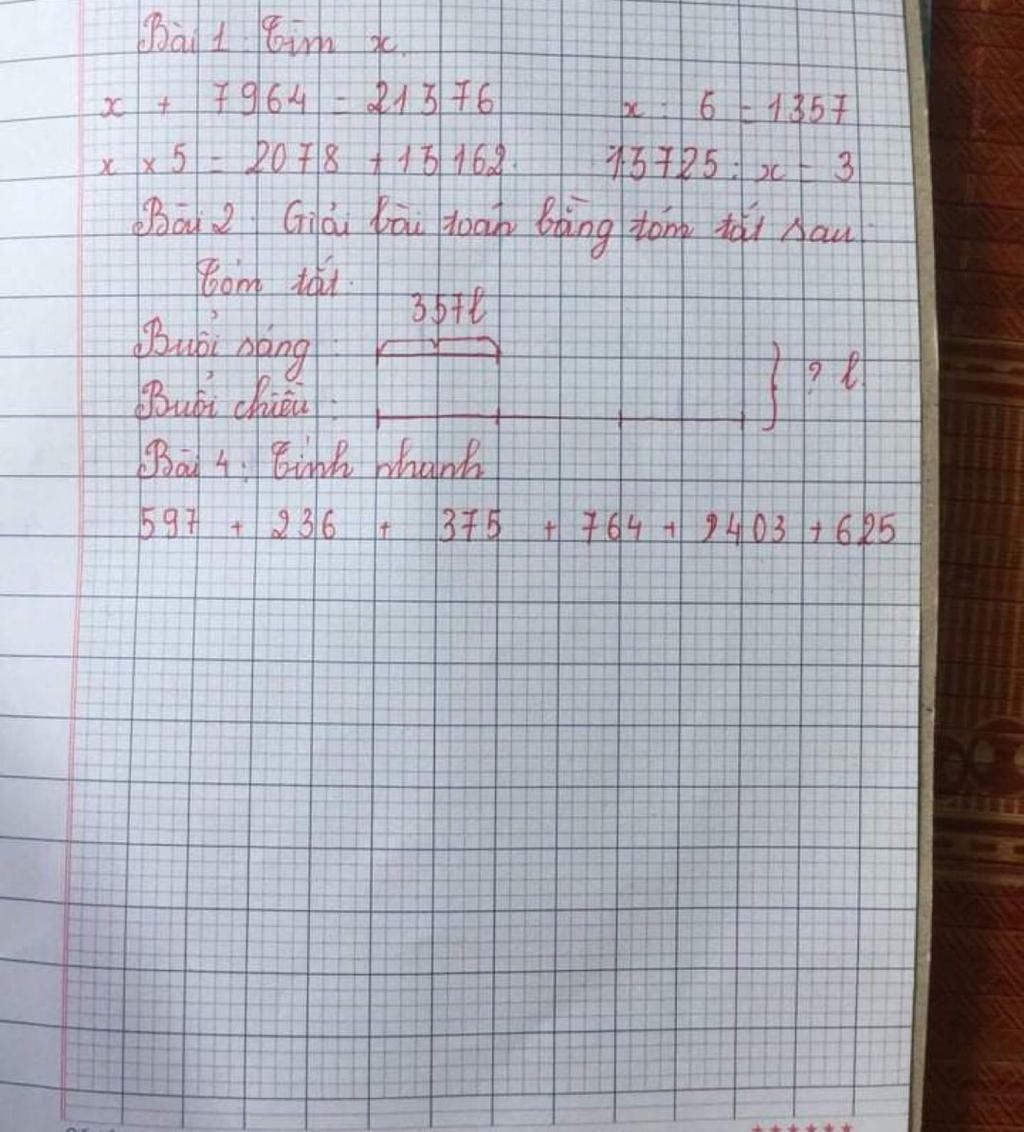 Bài 1: Tìm x.
x + 7964 = 21376 x : 6 = 1357
x × 5 = 2078 + 13162. 13725 : x = 3
Bài 2: Giải bài toán bằng tóm tắt sau:
Tóm tắt:
357l
Buổi sáng :
? l
Buổi chiều :
Bài 4: Tính nhanh
597 + 236 + 375 + 764 + 2403 + 625